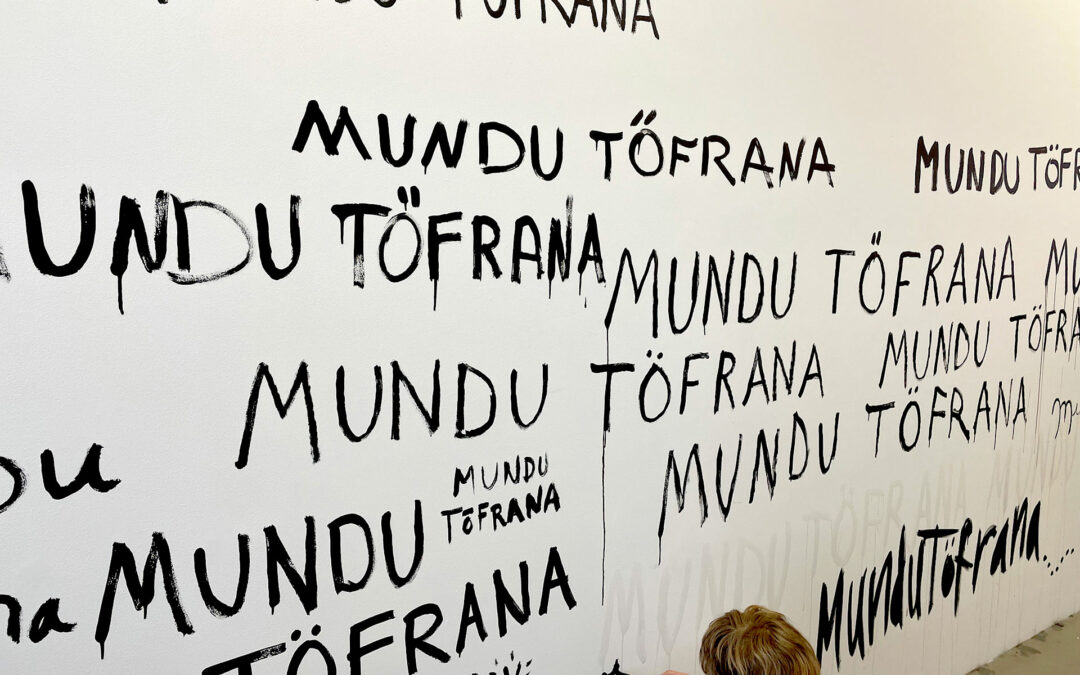 MUNDU TÖFRANA
MUNDU TÖFRANA
MUNDU TÖFR
UNDU TÖFRANA
MUNDU TÖFRANA
MU
MUNDU TÖFRA
MUNDU TÖFRANA
MUNDU TÖFRANA
DU
MUNDU
TÖFRANA
MUNDU TÖFRANA
MUNDU
na
MUNDU
TÖFRANA
MunduTöfrana...